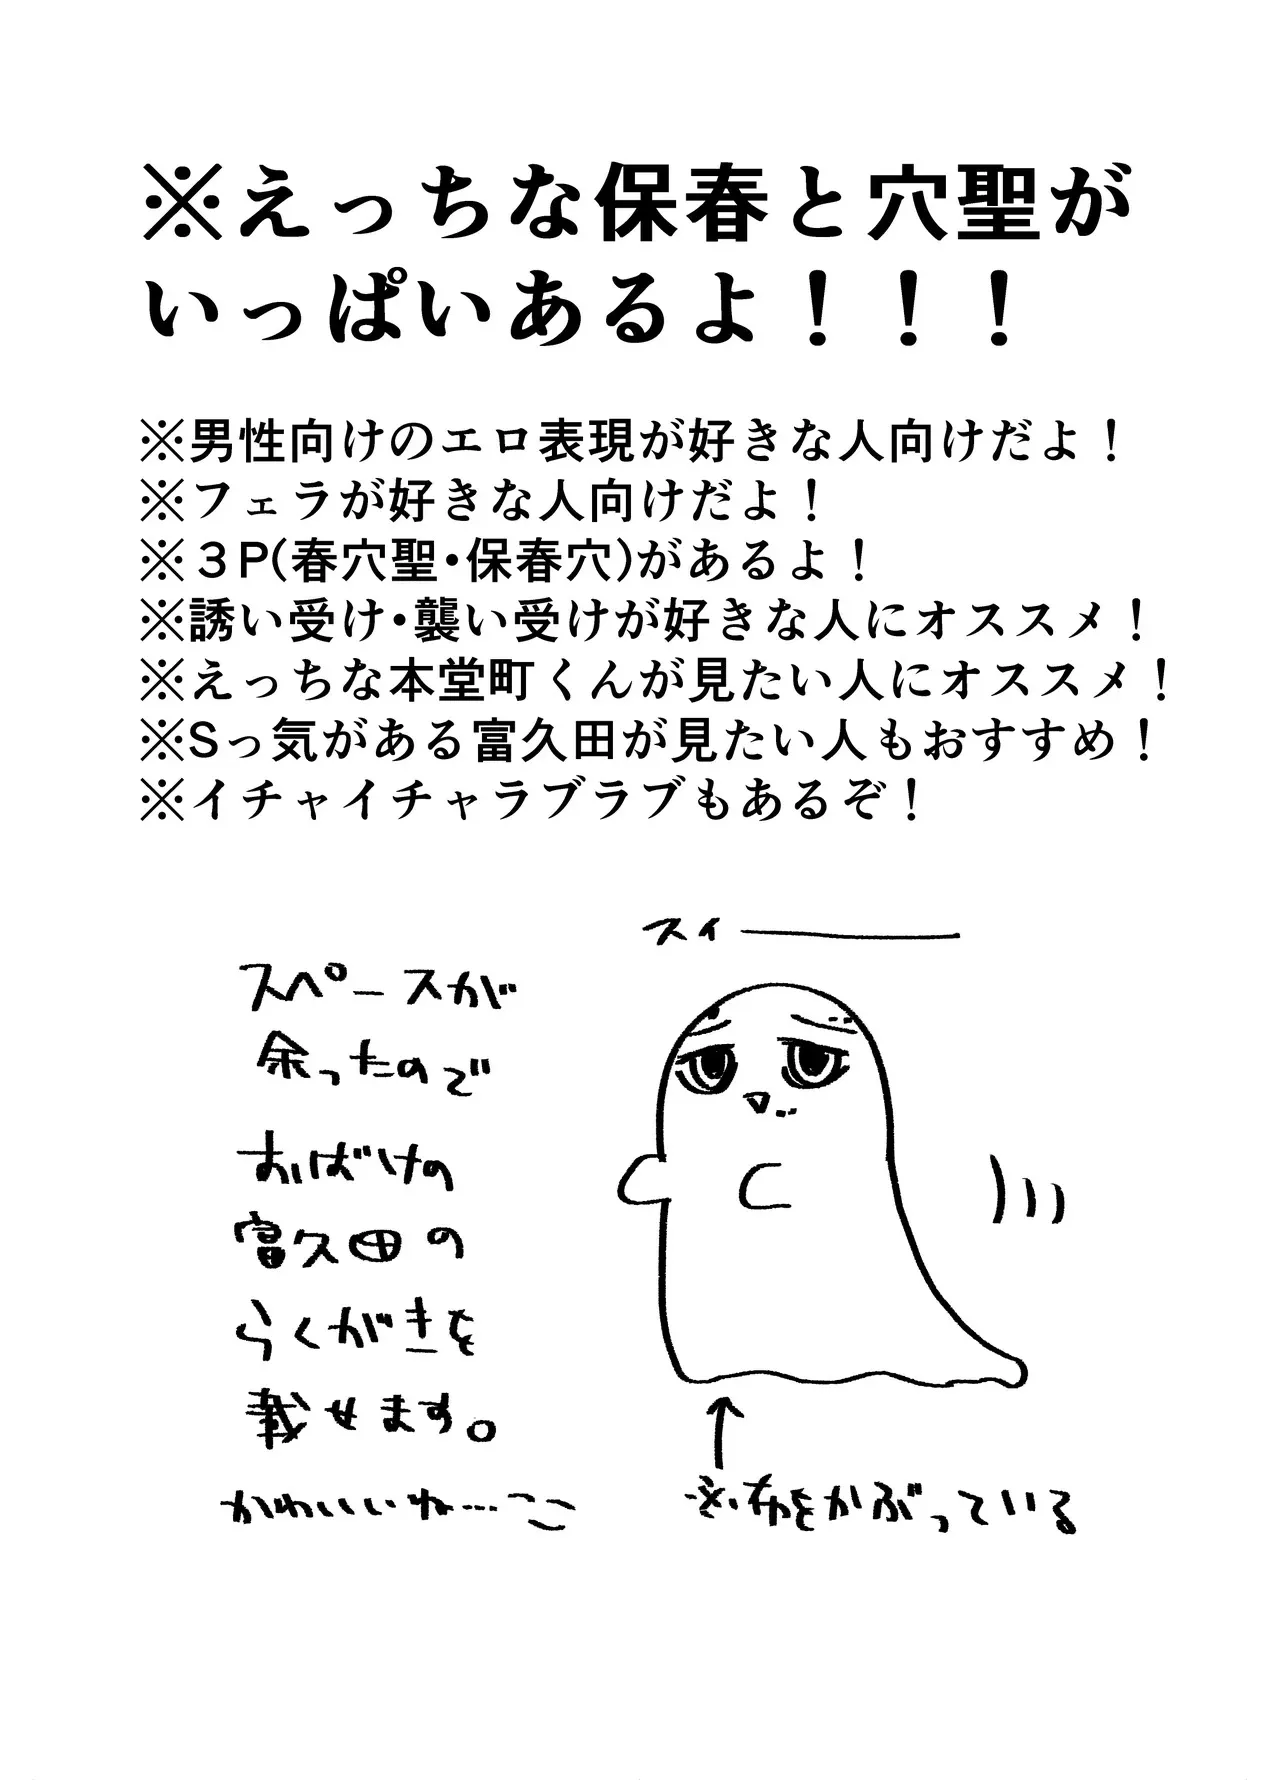 ※えっちな保春と穴聖が
いっぱいあるよ！！！
※男性向けのエロ表現が好きな人向けだよ！
※フェラが好きな人向けだよ！
※３P(春穴聖・保春穴)があるよ！
※誘い受け・襲い受けが好きな人にオススメ！
※えっちな本堂町くんが見たい人にオススメ！
※Sっ気がある富久田が見たい人もおすすめ！
※イチャイチャラブラブもあるぞ！
スペースが
余ったので
おばけの
富久田の
らくがきを
載せます。
かわいいね…
スイー
布をかぶっている